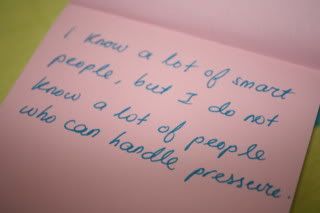 I know a lot of smart
people, but I do not
know a lot of people
who can handle pressure.